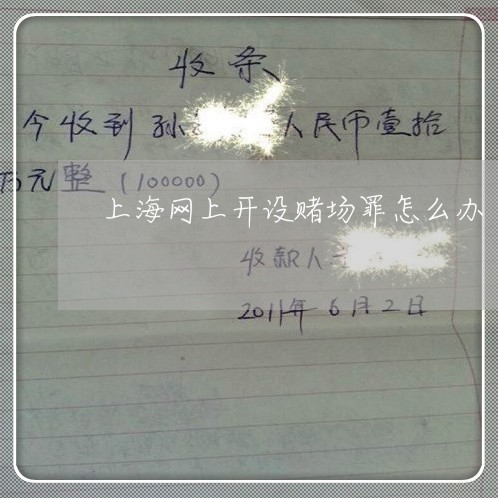 收条
今收到孙 人民币壹拾
万元整(100000)
上海网上开设赌场罪怎么办
收款人
2011年6月2日